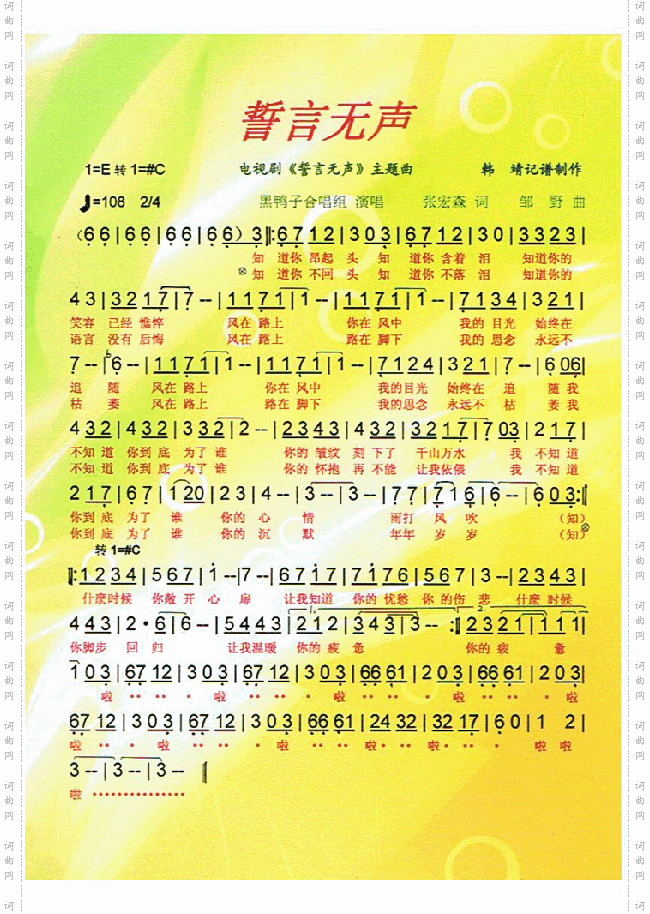 誓言无声
1=E 转 1=#C 电视剧《誓言无声》主题曲 韩 靖记谱制作
=108 2/4 黑鸭子合唱组 演唱 张宏森 词 邹 野 曲
(6 6 | 6 6 | 6 6 | 6 6 | 6 6 ) 3 |: 6 7 1 2 | 3 0 3 | 6 7 1 2 | 3 0 | 3 3 2 3 |
知 道你 昂起 头 知 道你 含着 泪 知道你的
知 道你 不回 头 知 道你 不落 泪 知道你的
4 3 | 3 2 1 7 | 7 -- | 1 1 7 1 | 1 -- | 1 1 7 1 | 1 -- | 7 1 3 4 | 3 2 1 |
笑容 已经 憔悴 风在 路上 你在 风中 我的 目光 始终在
语言 没有 后悔 风在 路上 路在 脚下 我的 思念 永远不
7 -- | b6 -- | 1 1 7 1 | 1 -- | 1 1 7 1 | 1 -- | 7 1 2 4 | 3 2 1 | 7 -- | 6 0 6 |
追 随 风在 路上 你在 风中 我的目光 始终在 追 随 我
枯 萎 风在 路上 路在 脚下 我的思念 永远不 枯 萎 我
4 3 2 | 4 3 2 | 3 3 2 | 2 -- | 2 3 4 3 | 4 3 2 | 3 2 1 7 | 7 0 3 | 2 1 7 |
不知 道 你到 底 为了 谁 你的 皱纹 刻 下了 千山万水 我 不知道
不知 道 你到 底 为了 谁 你的 怀抱 再 不能 让我依偎 我 不知道
2 1 7 | 6 7 6 | 1 2 0 | 2 3 | 4 -- | 3 -- | 3 -- | 7 7 | 7 1 6 | 6 -- | 6 0 3 :|
你到 底 为了 谁 你的 心 情 雨打 风 吹 (知)
你到 底 为了 谁 你的 沉 默 年年 岁 岁 (知)
转 1=#C
|: 1 2 3 4 | 5 6 7 | 1 -- | 7 -- | 6 7 1 7 | 7 1 7 6 | 5 6 7 | 3 -- | 2 3 4 3 |
什麽时候 你敞 开 心 扉 让我知道 你的 忧愁 你 的伤 悲 什麽 时候
4 4 3 | 2 · 6 | 6 -- | 5 4 4 3 | 2 1 2 | 3 4 3 | 3 -- :| 2 3 2 1 | 1 1 1 |
你脚步 回 归 让我温暖 你的 疲 惫 你的 疲 惫
1 0 3 | 6 7 1 2 | 3 0 3 | 6 7 1 2 | 3 0 3 | 6 6 6 1 | 2 0 3 | 6 6 6 1 | 2 0 3 |
啦 ·· ·· · 啦 ·· ·· · 啦 ·· ·· · 啦 ·· ·· · 啦
6 7 1 2 | 3 0 3 | 6 7 1 2 | 3 0 3 | 6 6 6 1 | 2 4 3 2 | 3 2 1 7 | 6 0 | 1 2 |
啦 ·· · 啦 ·· ·· · 啦 ·· ·· 啦· ·· ·· · 啦 啦
3 -- | 3 -- | 3 -- ‖
啦 ···············
词曲网